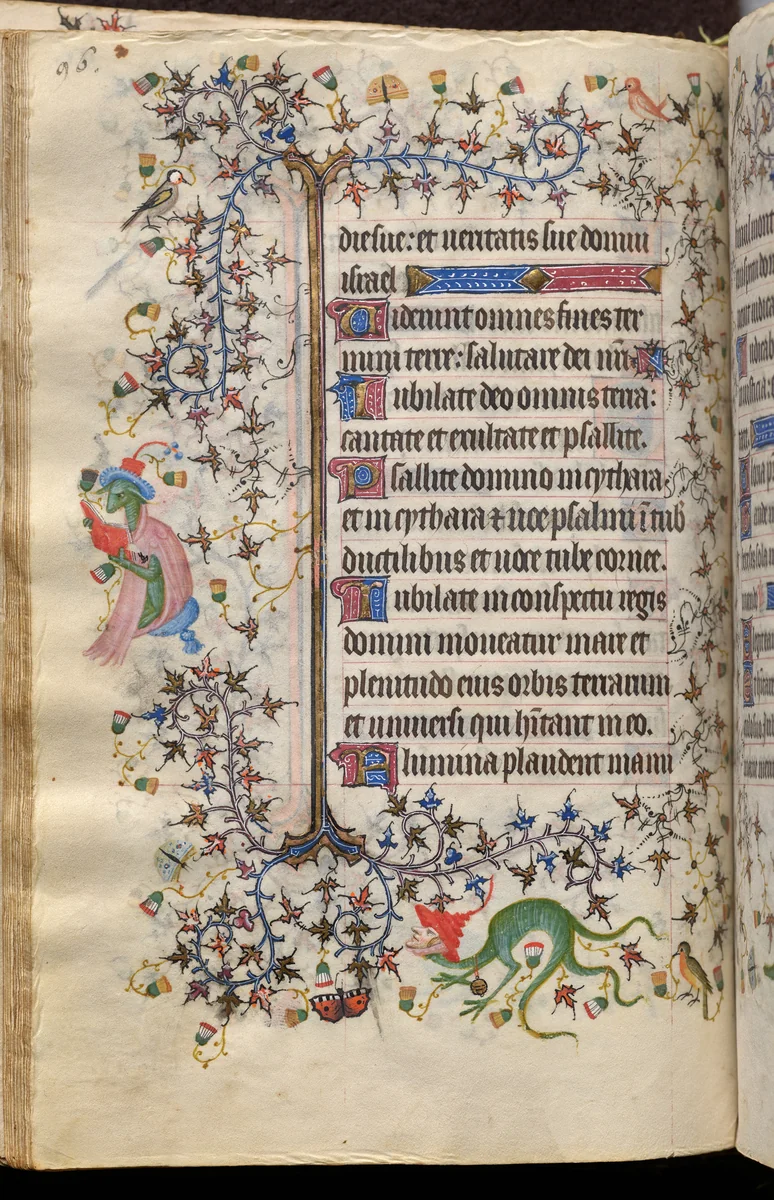 96.
die sue: et ueritatis sue domui
israel
Uiderunt omnes fines ter
mini terre: salutare dei nr̃i
Iubilate deo omnis terra:
cantate et exultate et psallite.
Psallite domino in cythara
et in cythara ⁊ uoce psalmi ĩ tub
ductilibus et uoce tube cornee.
Iubilate in conspectu regis
domini moueatur mare et
plenitudo eius orbis terrarum
et uniuersi qui hĩtant in eo.
Flumina plaudent manu